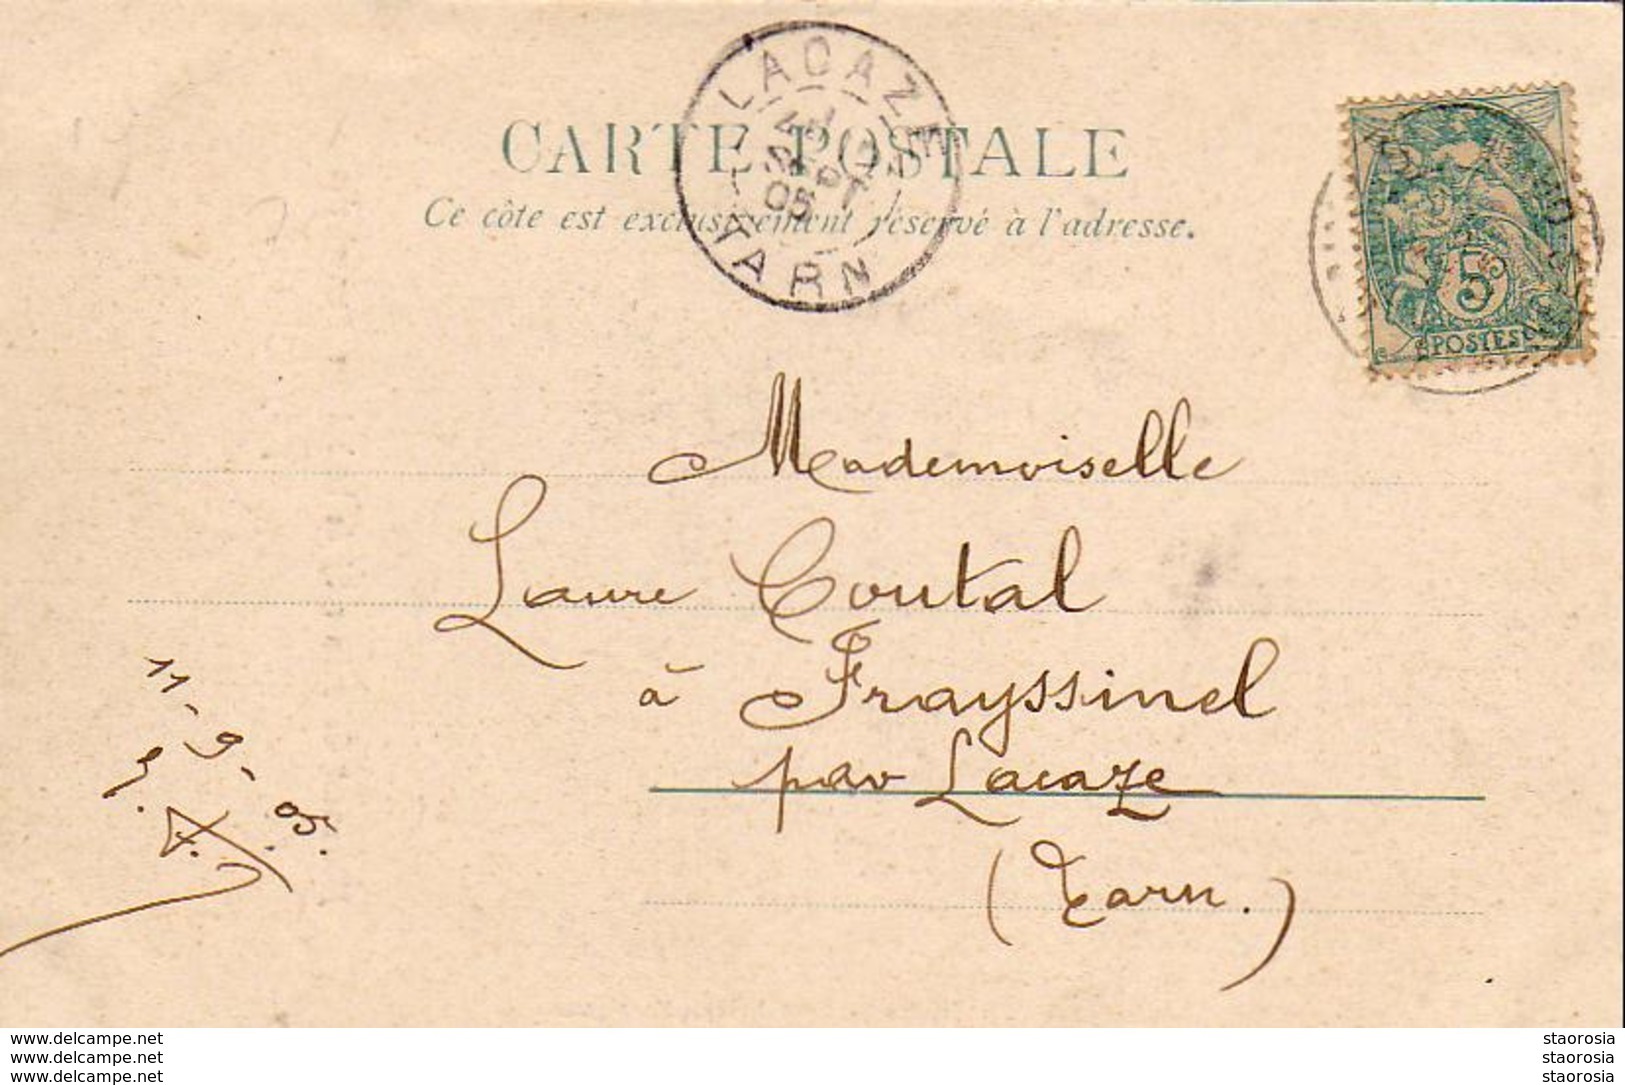 LACAZE
SEPT
05
TARN
CARTE POSTALE
Ce côte est exclusivement réservé à l'adresse.
5
POSTES
Mademoiselle
Laure Coutal
à Frayssinel
par Lacaze
(Tarn.)
11-9-05.
www.delcampe.net
www.delcampe.net
www.delcampe.net
staorosia
staorosia
staorosia